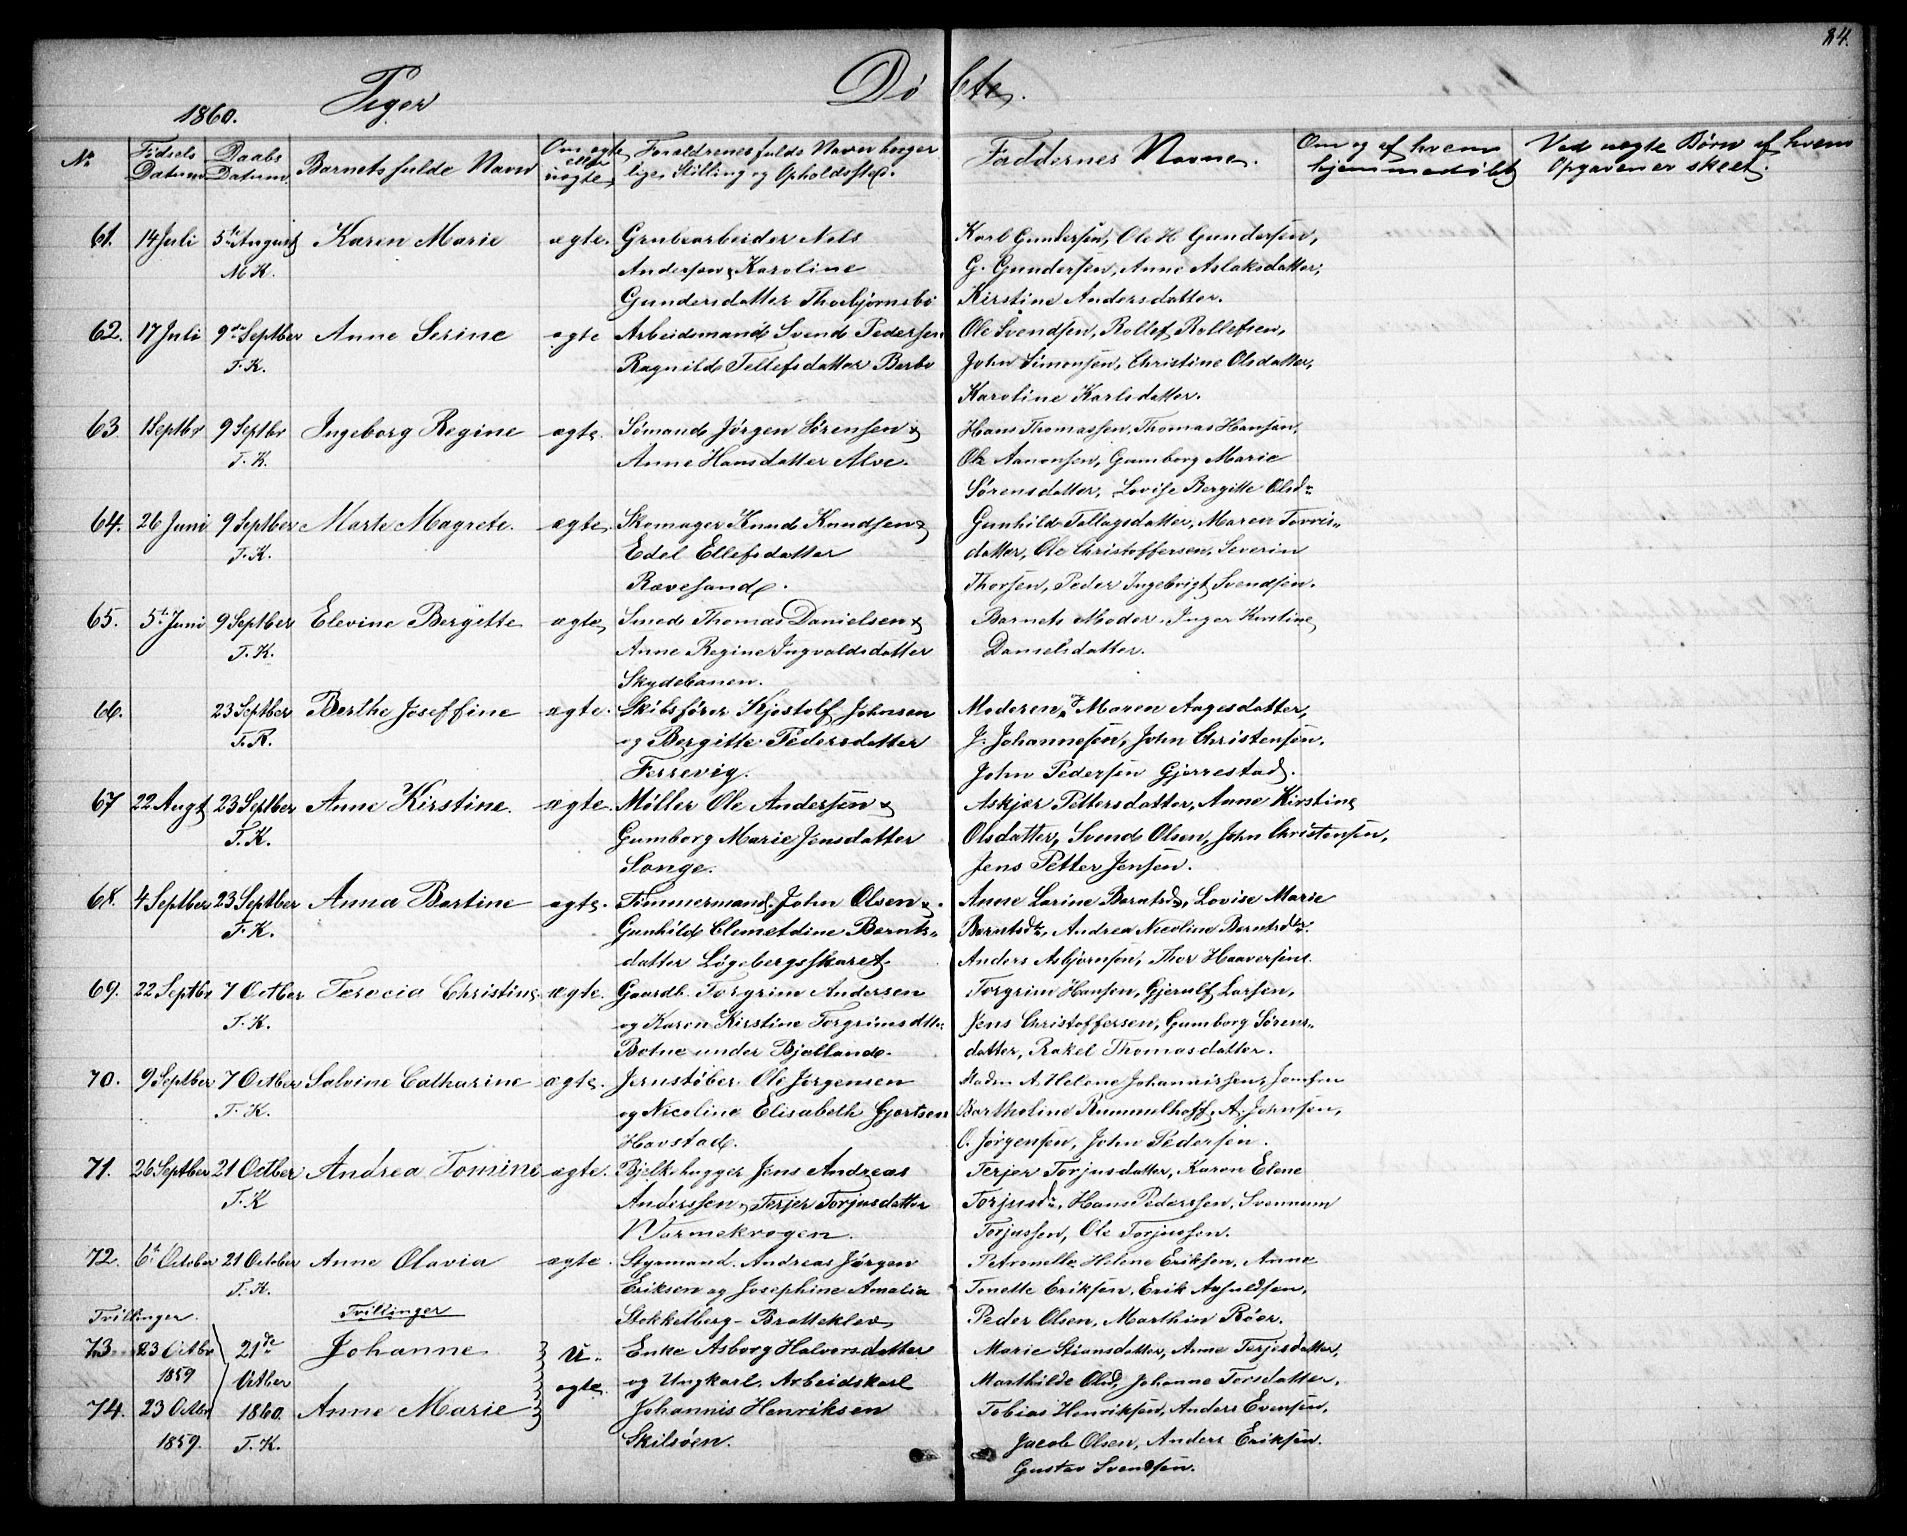 84.
1860. Piger Døbte.
No
Fødsels Datum
Daabs Datum
Barnets fulde Navn
Om ægte eller uægte
Forældrenes fulde Navn borgerlige Stilling og Opholdssted.
Faddernes Navne.
Om og af hvem hjemmedøbt
Ved uægte Børn af hvem Opgaven er skeet.
61. 14 Juli 5te August Karen Marie ægte. Grubearbeider Nels Karl Gundersen, Ole H Gundersen,
M K. Andersen & Karoline G. Gundersen, Anne Aslaksdatter,
Gundersdatter Thorbjørnsbo Kirstine Andersdatter.
62. 17 Juli 9de Septber Anne Serine ægte Arbeidsmand Svend Pedersen Ole Svendsen, Rollef Rollefsen,
T. K. Ragnild Tellefsdatter Berbo John Simonsen, Christine Olsdatter,
Karoline Karlsdatter.
63 1 Septbr 9 Septbr Ingeborg Regine ægte. Sømand Jørgen Sørensen & Hans Thomassen, Thomas Hansen,
T. K. Anne Hansdatter Alve. Ole Aanonsen, Gumborg Marie
Sørensdatter, Lovise Bergitte Olsdr
64. 26 Juni 9 Septber Marte Magrete. ægte. Skomager Knud Knudsen & Gunhild Tallagsdatter, Maren Torris-
T. K. Edel Ellefsdatter datter, Ole Christoffersen, Severin
Rævesand. Thorsen, Peder Ingebrigt Svendsen.
65. 5te Juni 9 Septber Elevine Bergitte ægte, Smed Thomas Danielsen & Barnets Moder, Inger Kirstine
T. K. Anne Regine Ingvaldsdatter Danielsdatter.
Skydebanen.
66. 23 Septber Berthe Joseffine ægte. Skibsfører Kjøstolf Johnsen Moderen, Maren Aagesdatter,
T. K. og Bergitte Pedersdatter J. Johannesen, John Christensen,
Ferrevig. John Pedersen Gjerrestad.
67 22 Augt 23 Septber Anne Kirstine. ægte. Møller Ole Andersen & Askjer Pettersdatter, Anne Kirstine
T. K. Gumborg Marie Jensdatter Olsdatter, Svend Olsen, John Christensen,
Songe. Jens Petter Jensen.
68. 4 Septber 23 Septber Anna Bertine ægte. Tømmermand John Olsen & Anne Larine Berntsd, Lovise Marie
T. K. Gunhild Clemetdine Bernts- Berntsdr, Andrea Nicoline Berntsdtr.
datter Løgebergsskaret. Anders Asbjørnsen, Thor Haaversen.
69. 22 Septbr 7 Octber Terecia Christine. ægte. Gaardb. Torgrim Andersen Torgrim Hansen, Gjerulf Larsen,
T. K. og Karen Kirstine Torgrimsdtr. Jens Christoffersen, Gumborg Sørens-
Botne under Bjelland. datter, Rakel Thomasdatter.
70. 9 Septber 7 Octber Salvine Catharine ægte. Jernstøber Ole Jørgensen Madm A. Helene Johannissen, Jomfru
T. K. og Nicoline Elisabeth Gjertsen Bartholine Rummelhoff, A. Johnsen,
Havstad. O. Jørgensen, John Pedersen.
71. 26 Septber 21 Octber Andrea Tomine ægte. Bjelkehugger Jens Andreas Terjer Torjusdatter, Karen Elene
T. K Anderssen & Terjer Torjusdatter Torjusdr, Hans Pederssen, Svennum
Varmekrogen. Torjussen, Ole Torjussen.
72. 6te October 21 October Anne Olavia ægte. Styrmand. Andreas Jørgen Petronelle Helene Eriksen, Anne
T. K. Eriksen og Josephine Amalia Tonette Eriksen, Erik
Tvillinger. Tvillinger Stokkelberg - Bratteklev Peder Olsen, Marthin Røer.
73 23 Octbr 21de Johanne u- Enke Asborg Halvorsdatter Marie Steansdatter, Anne Terjesdatter,
1859 Octber ægte. og Ungkarl, Arbeidskarl Marthilde Olsd, Johanne Torsdatter,
74. 23 Octbr 1860. Anne Marie Johannis Henriksen Tobias Henriksen, Anders Evensen,
1859. T. K. Skilsøen. Jacob Olsen, Anders Eriksen.
Gustav Svendsen.